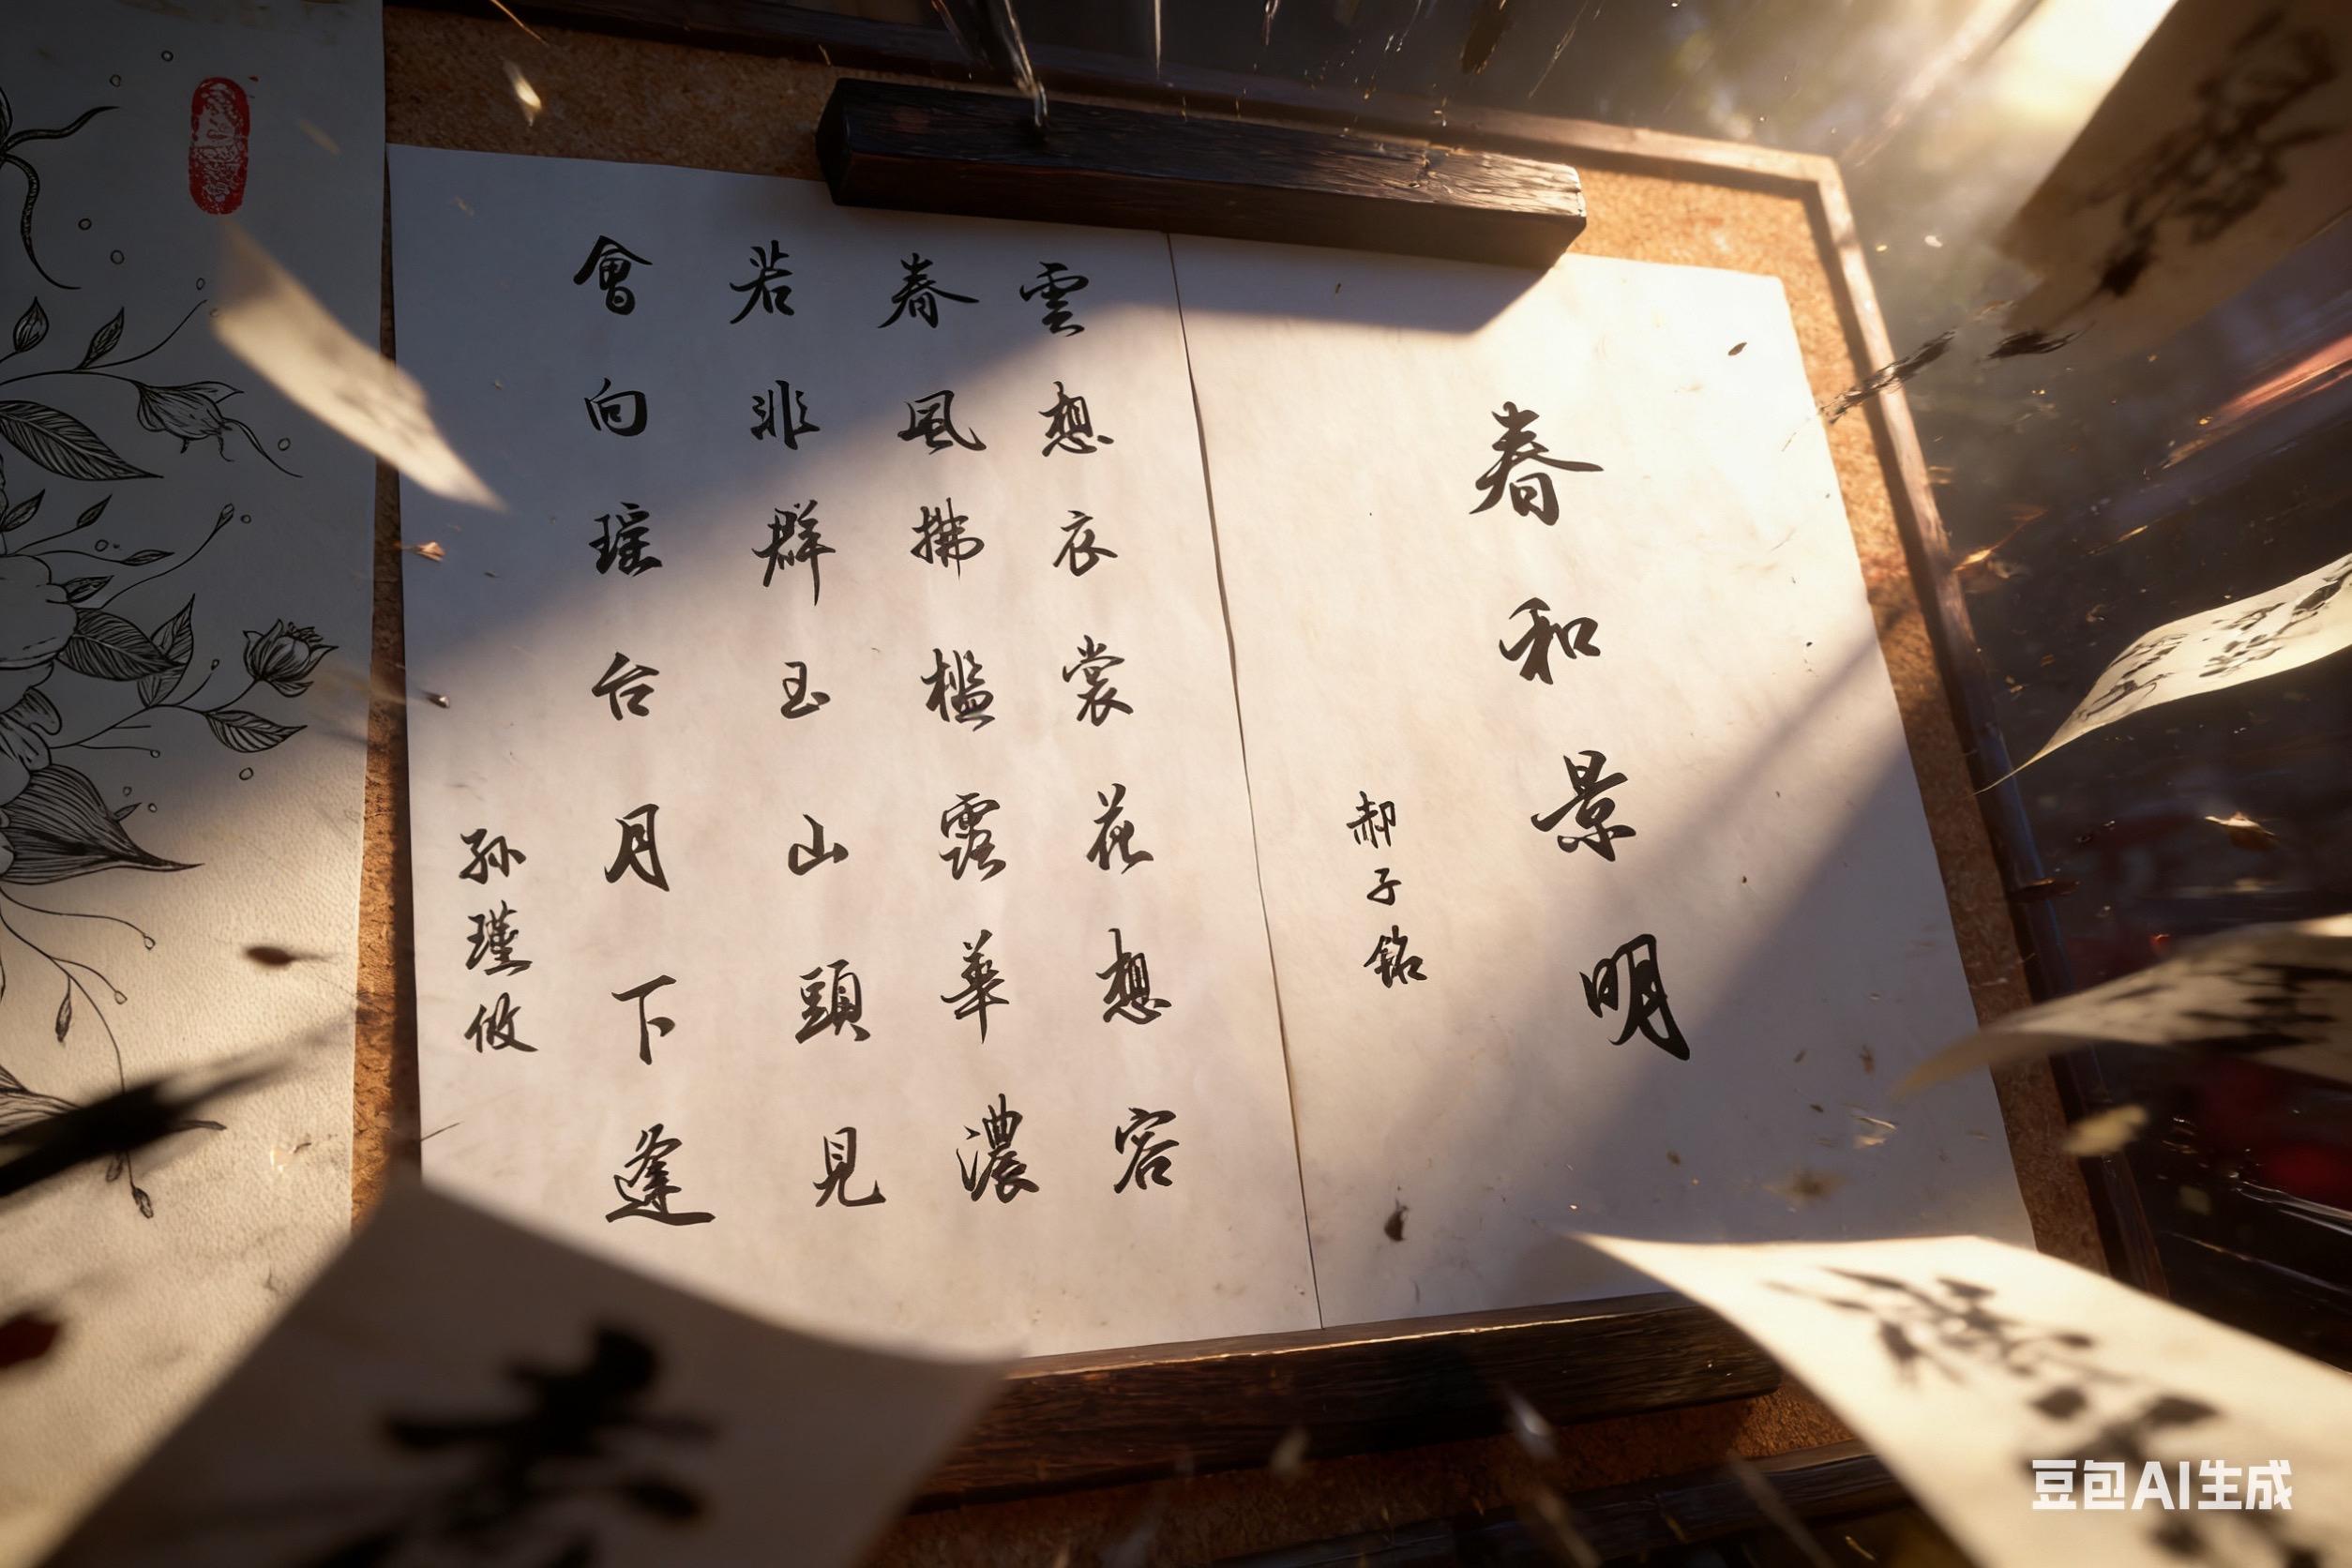 春和景明
郝子銘
雲想衣裳花想容
春風拂檻露華濃
若非群玉山頭見
會向瑶台月下逢
孙瑾攸
豆包AI生成